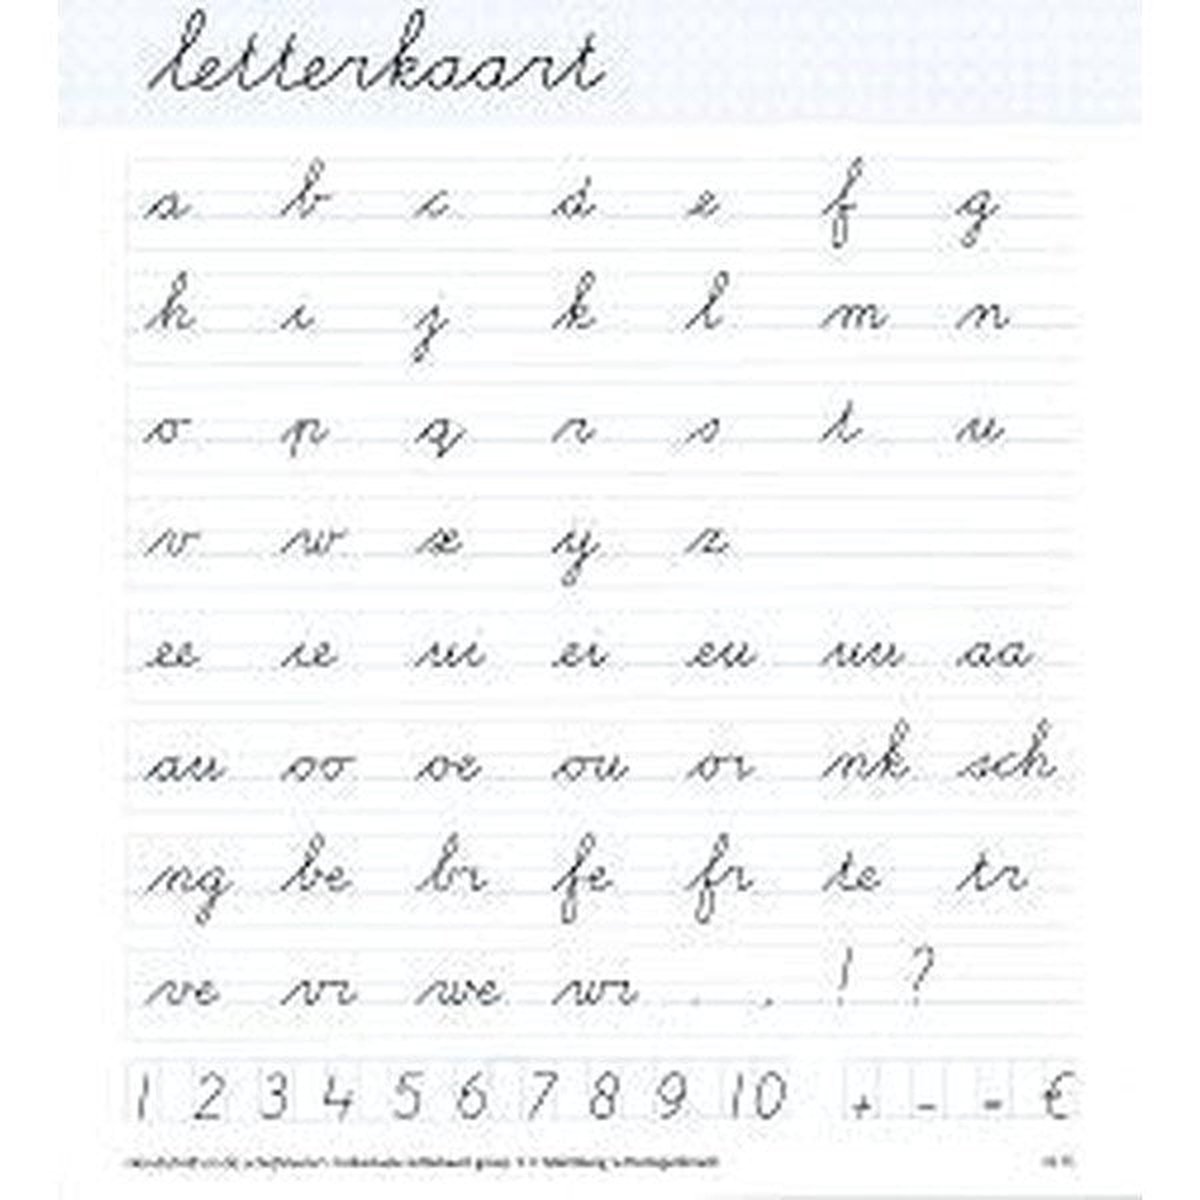 letterkaart
a b c d e f g
h i j k l m n
o p q r s t u
v w x y z
ee ie ui ei eu uu aa
au oo oe ou or nk sch
ng be br fe fr te tr
ve vr we wr . , ! ?
1 2 3 4 5 6 7 8 9 10 + - = €